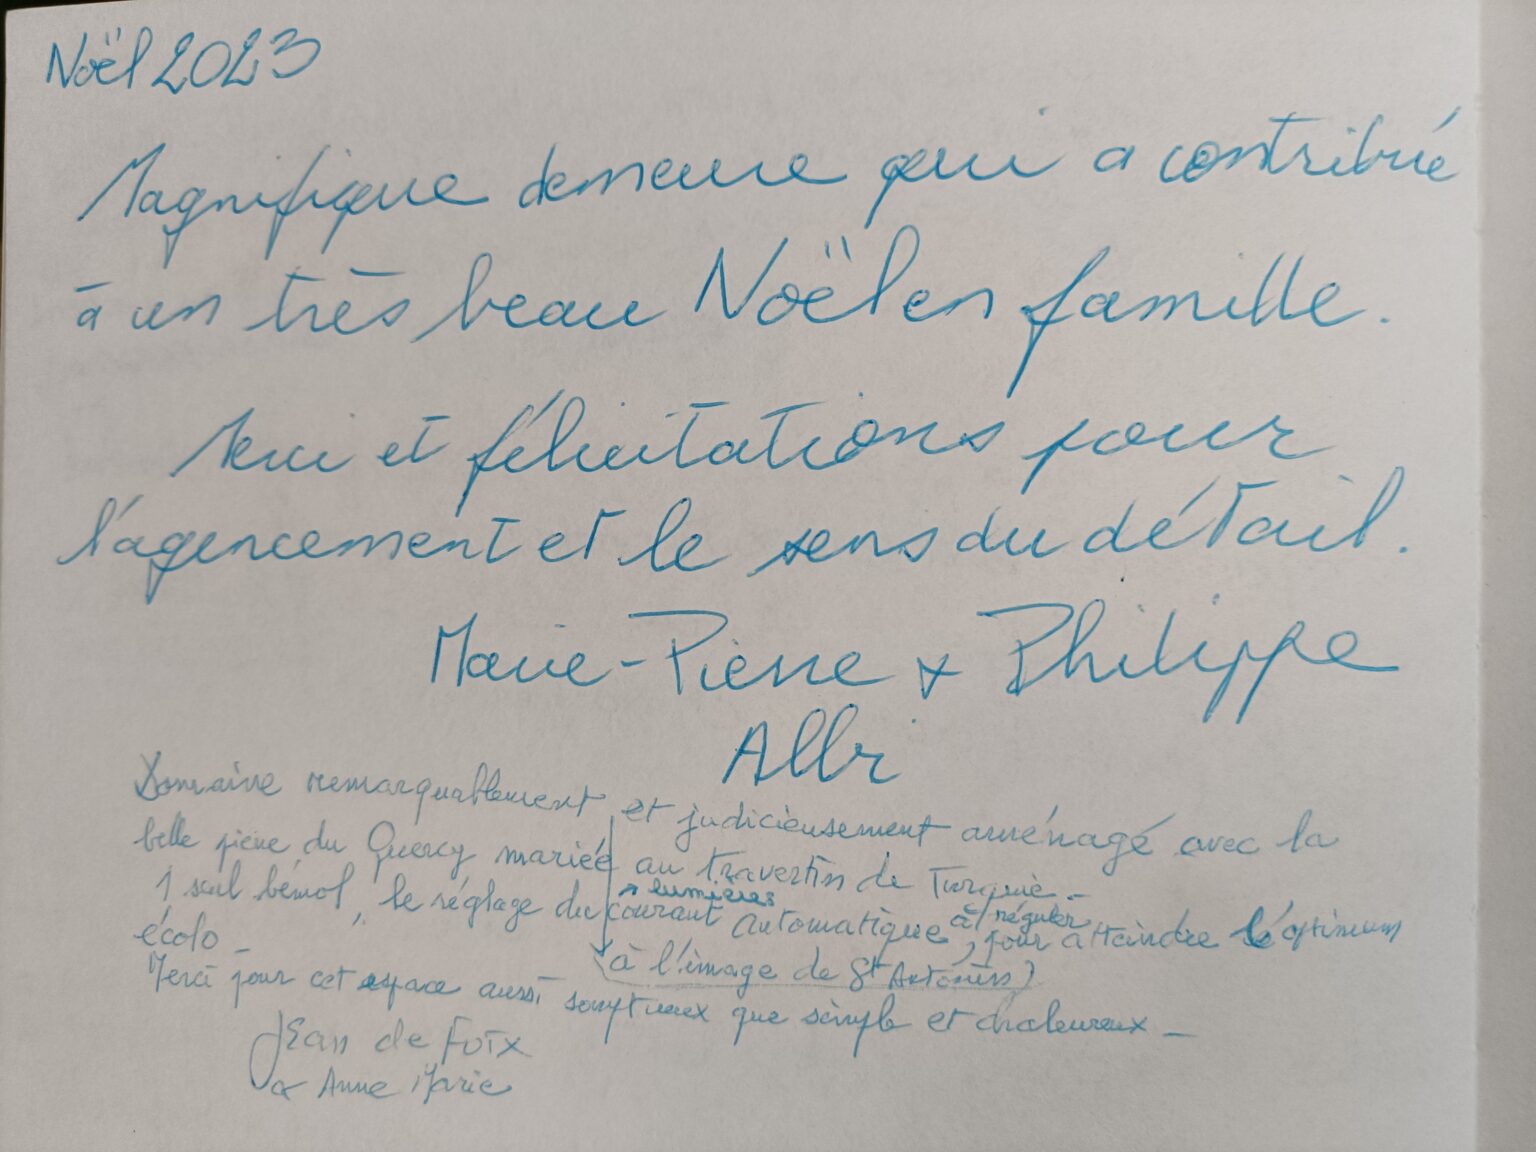 Noël 2023
Magnifique demeure qui a contribué
à un très beau Noël en famille.
Merci et félicitations pour
l'agencement et le sens du détail.
Marie-Pierre & Philippe
Domaine remarquablement et judicieusement aménagé avec la
belle pierre du Quercy mariée au travertin de Turquie -
lumières à réguler
1 seul bémol, le réglage du courant automatique, pour atteindre l'optimum
écolo -
(à l'image de St Antonin)
Merci pour cet espace aussi somptueux que simple et chaleureux -
Jean de Foix
& Anne Marie